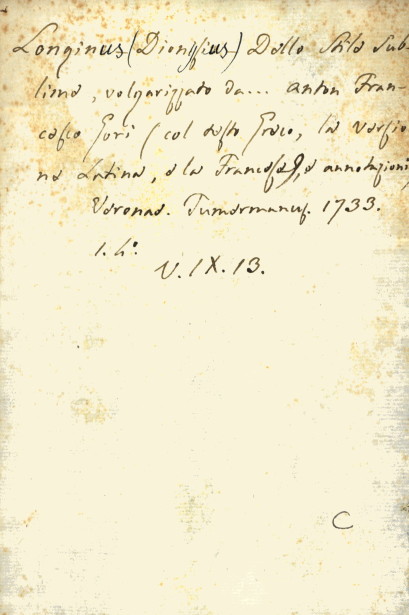 Longinus (Dionysius) Dello stile sub-
lime, volgarizzato da... Anton Fran-
cesco Gori (col testo Greco, la versio
ne Latina, e la Francese), e annotazioni,
Veronae. Tumermanus. 1733.
1. 4°.
V. IX. 13.
C